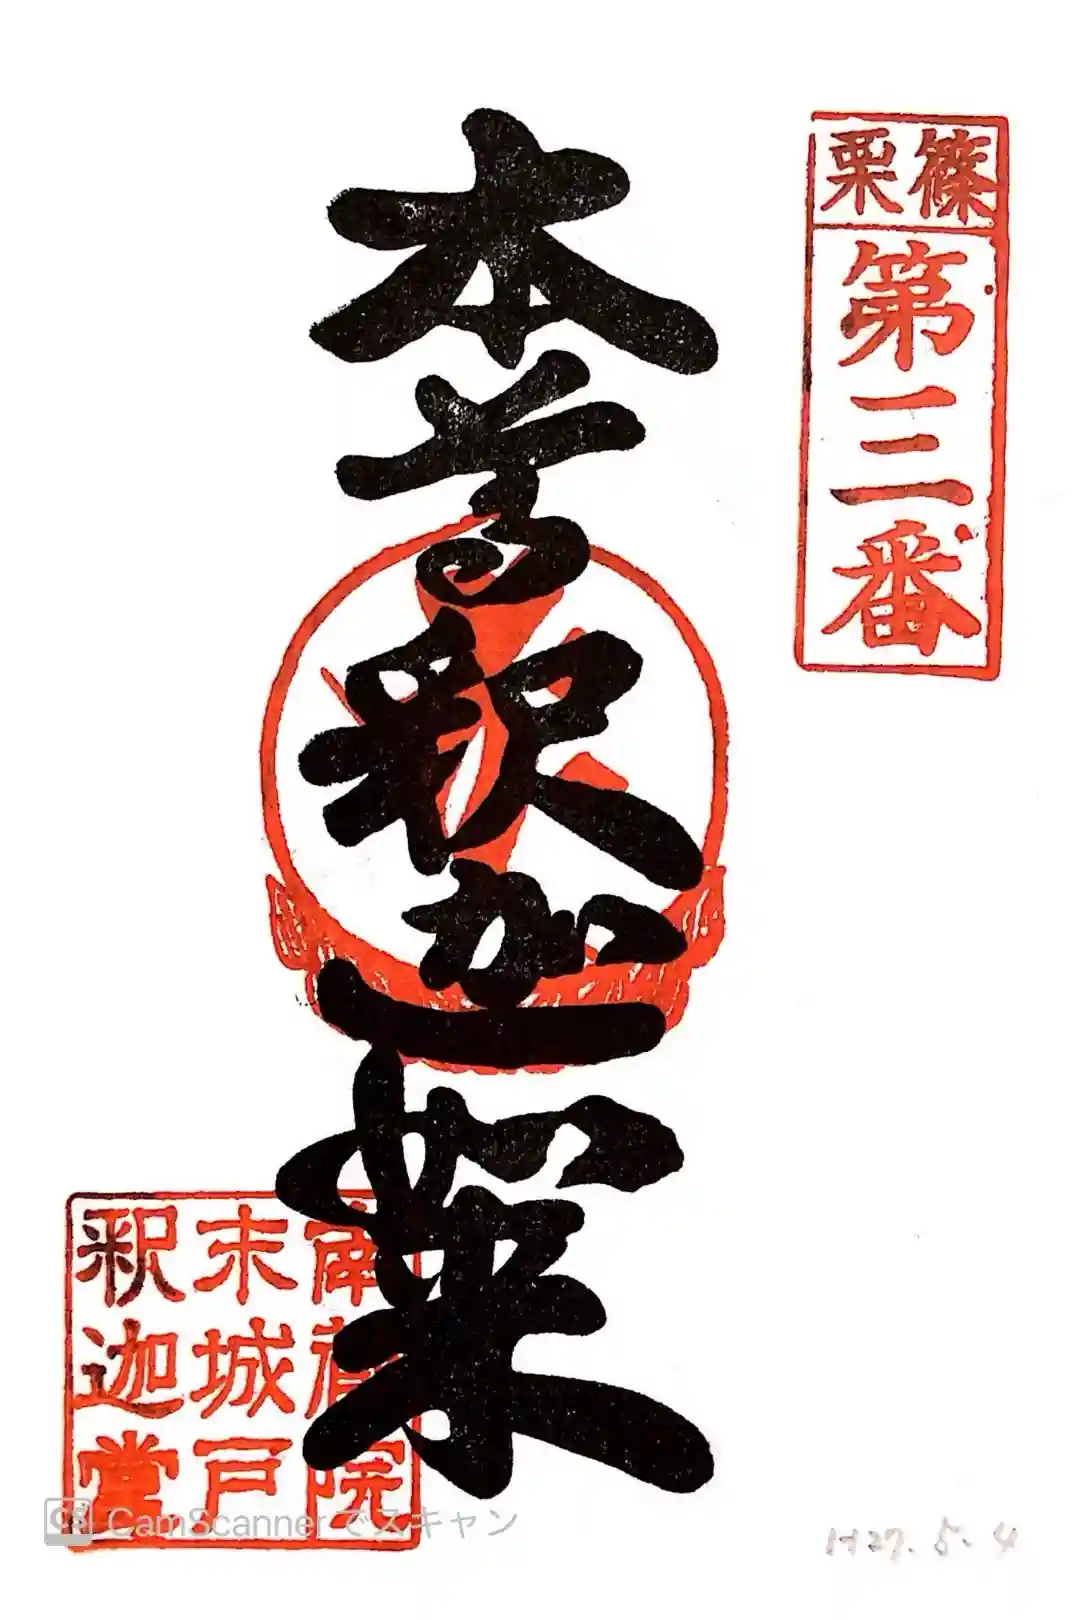 篠栗
第三番
本尊釈迦如来
南蔵院
末城戸
釈迦堂
CS CamScanner でスキャン
H27.5.4